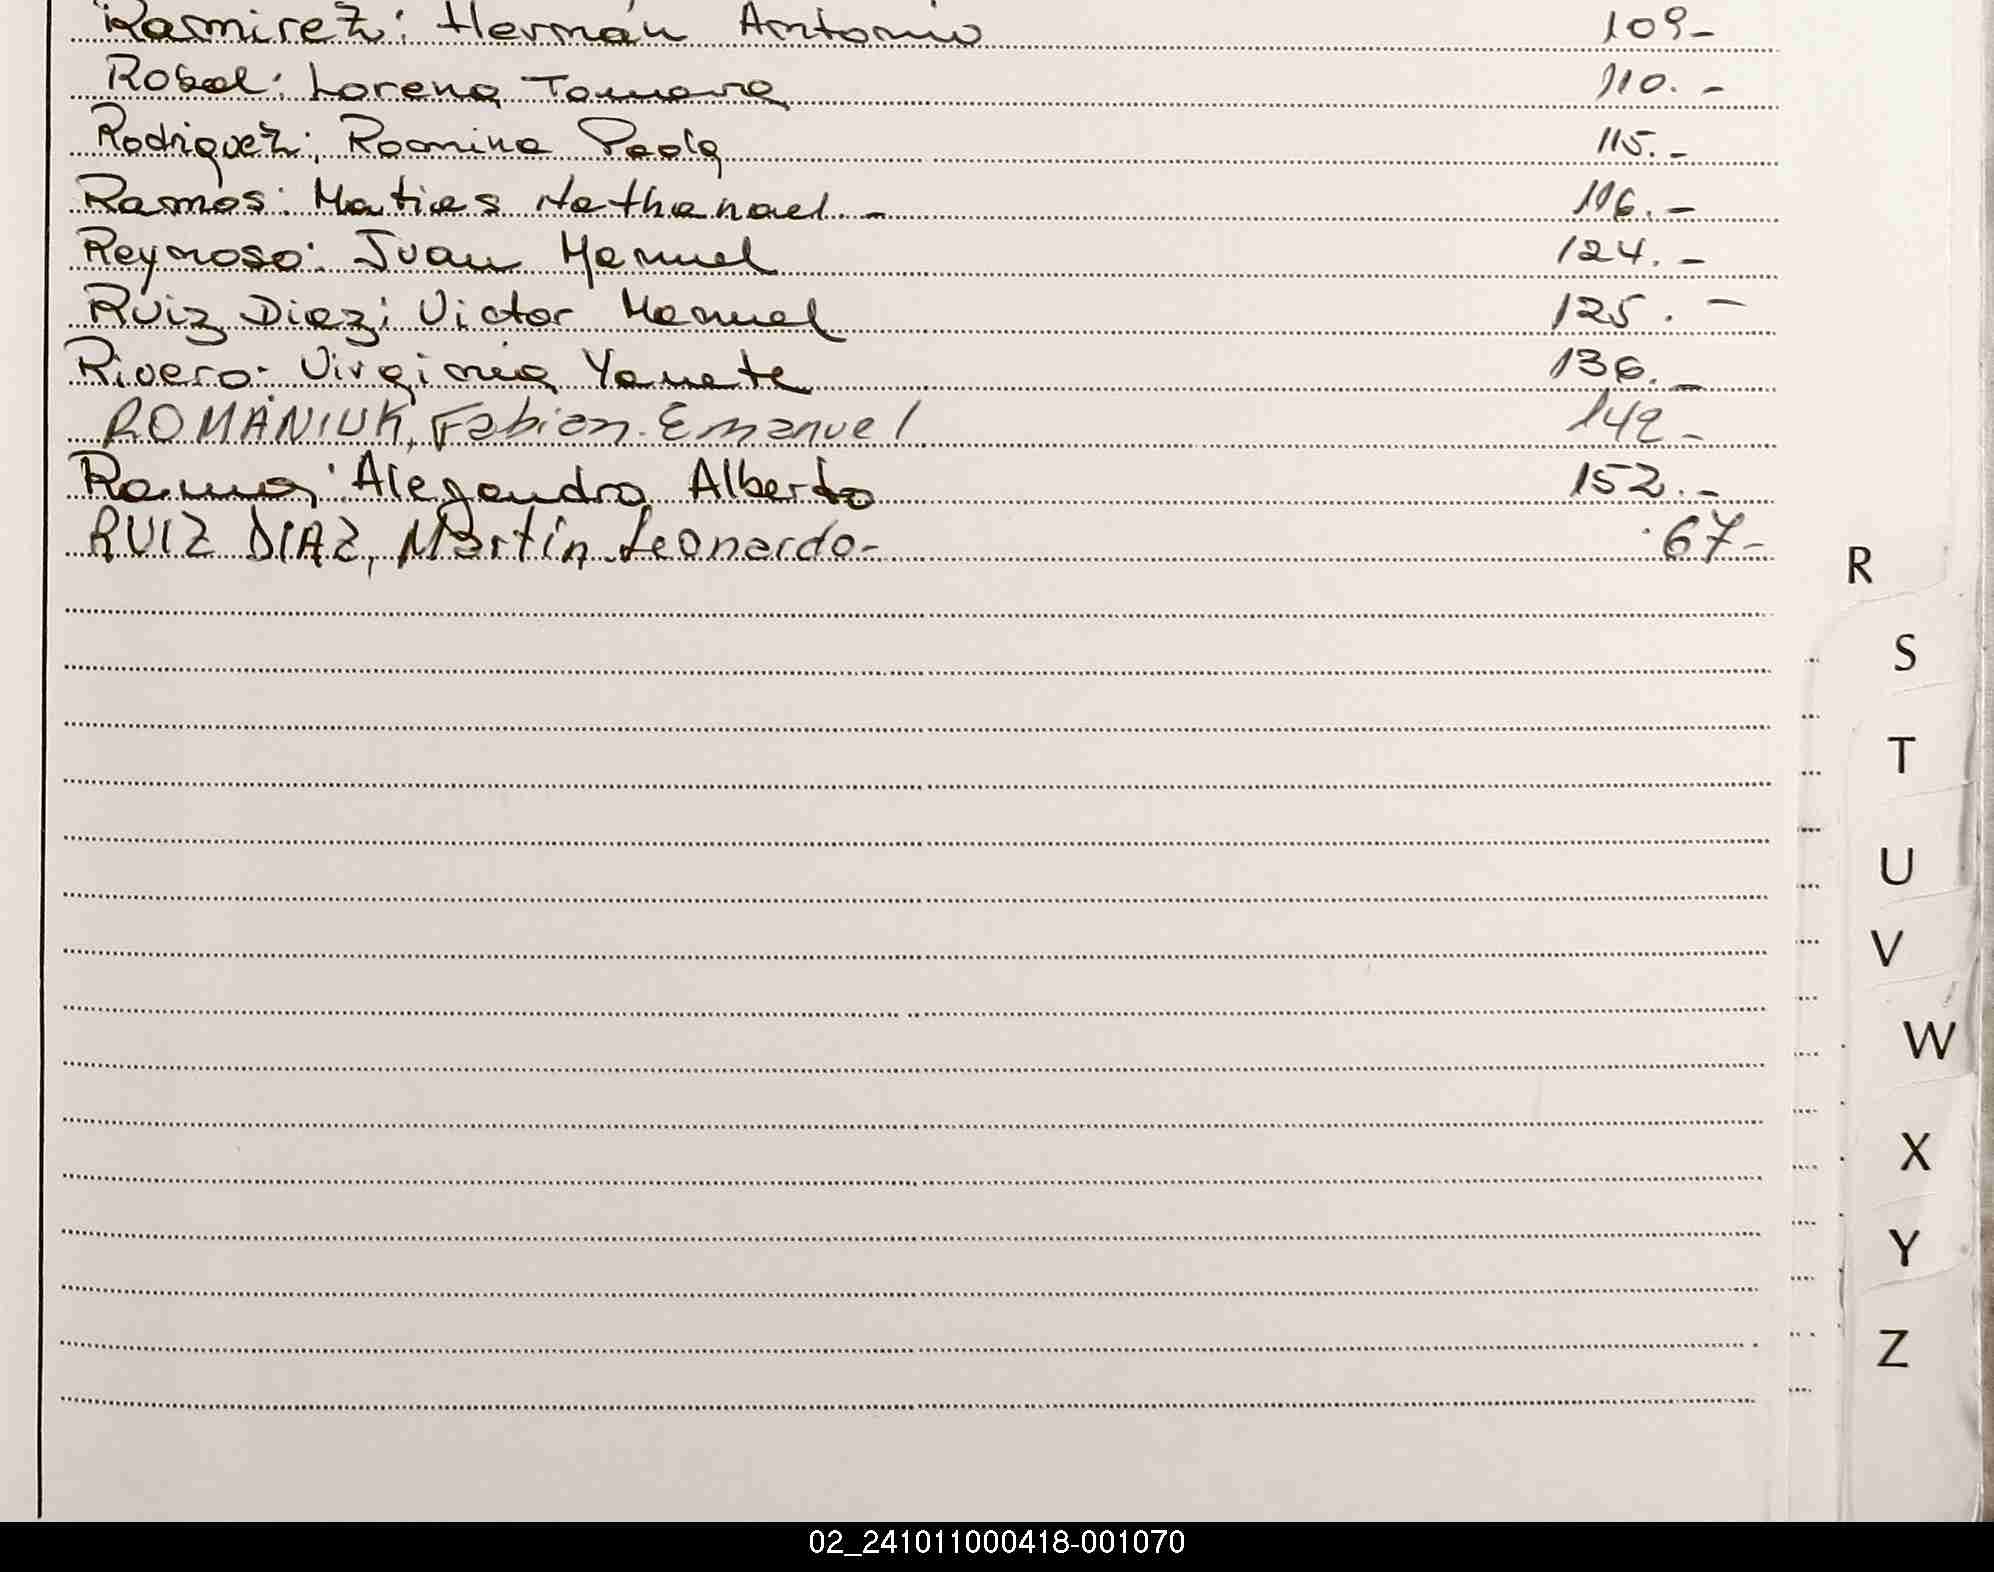 Ramirez: Hernán Antonio 109-
Robal: Lorena Tamara 110.-
Rodriguez: Romina Paola 115.-
Ramos: Matias Nathanael.- 116.-
Reynoso: Juan Manuel 124.-
Ruiz Diaz: Victor Manuel 125.-
Rivero: Virginia Yanete 136.-
ROMANIUK, Fabian Emanuel 142-
Alejandro Alberto 152.-
RUIZ DIAZ, Martín Leonardo- 67-
R
S
T
U
V
W
X
Y
Z
02_241011000418-001070